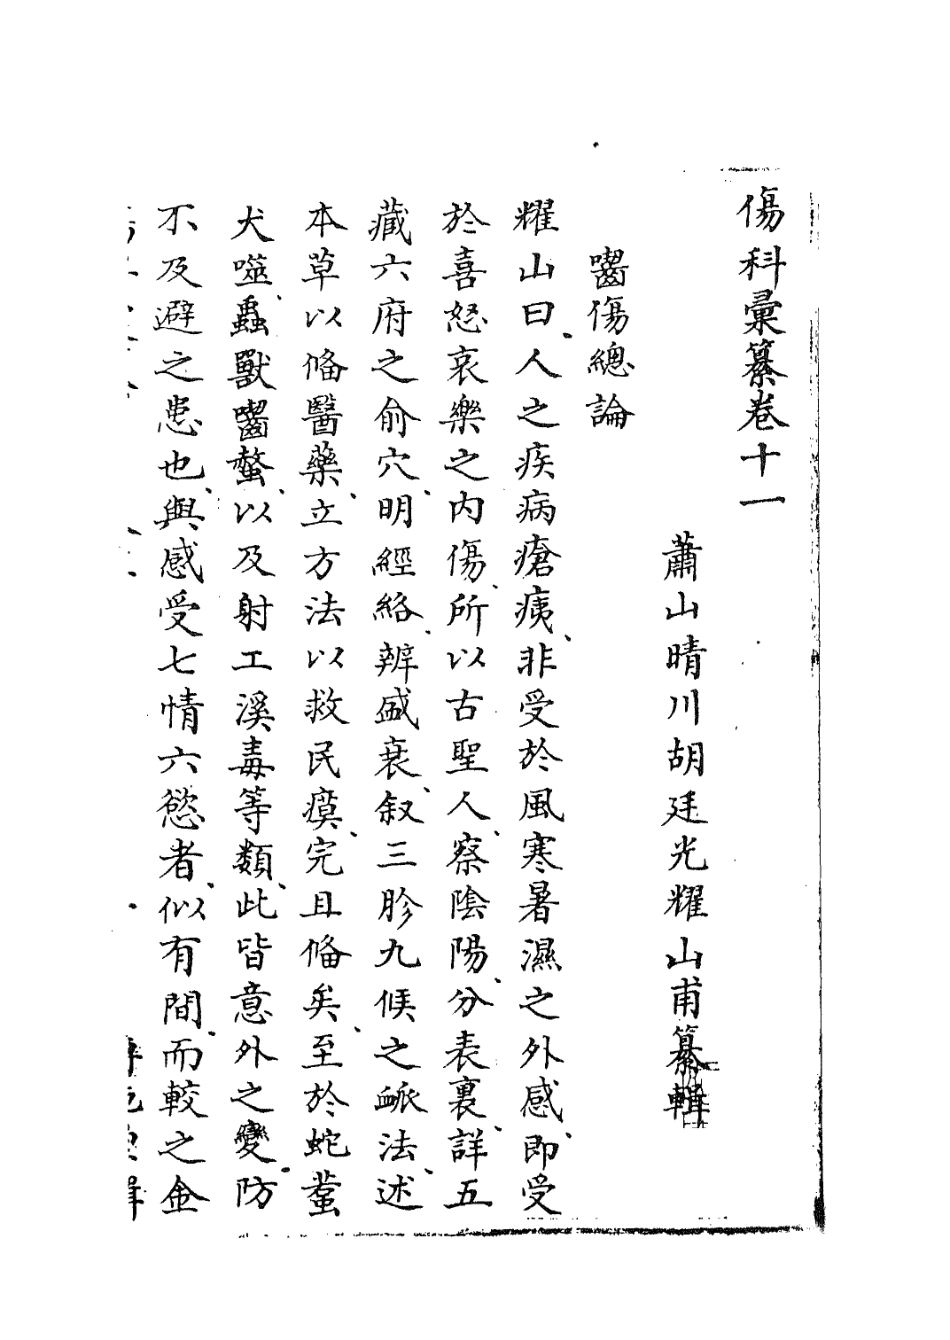 傷科彙纂卷十一
蕭山晴川胡廷光耀山甫纂輯
嚙傷總論
耀山曰、人之疾病瘡痍、非受於風寒暑濕之外感、即受
於喜怒哀樂之內傷、所以古聖人、察陰陽、分表裏、詳五
藏六府之俞穴、明經絡、辨盛衰、叙三胗九候之脈法、述
本草以俻醫藥、立方法以救民瘼、完且俻矣、至於蛇蜇
犬噬、蟲獸嚙螫、以及射工溪毒等類、此皆意外之變、防
不及避之患也、與感受七情六慾者、似有間、而較之金